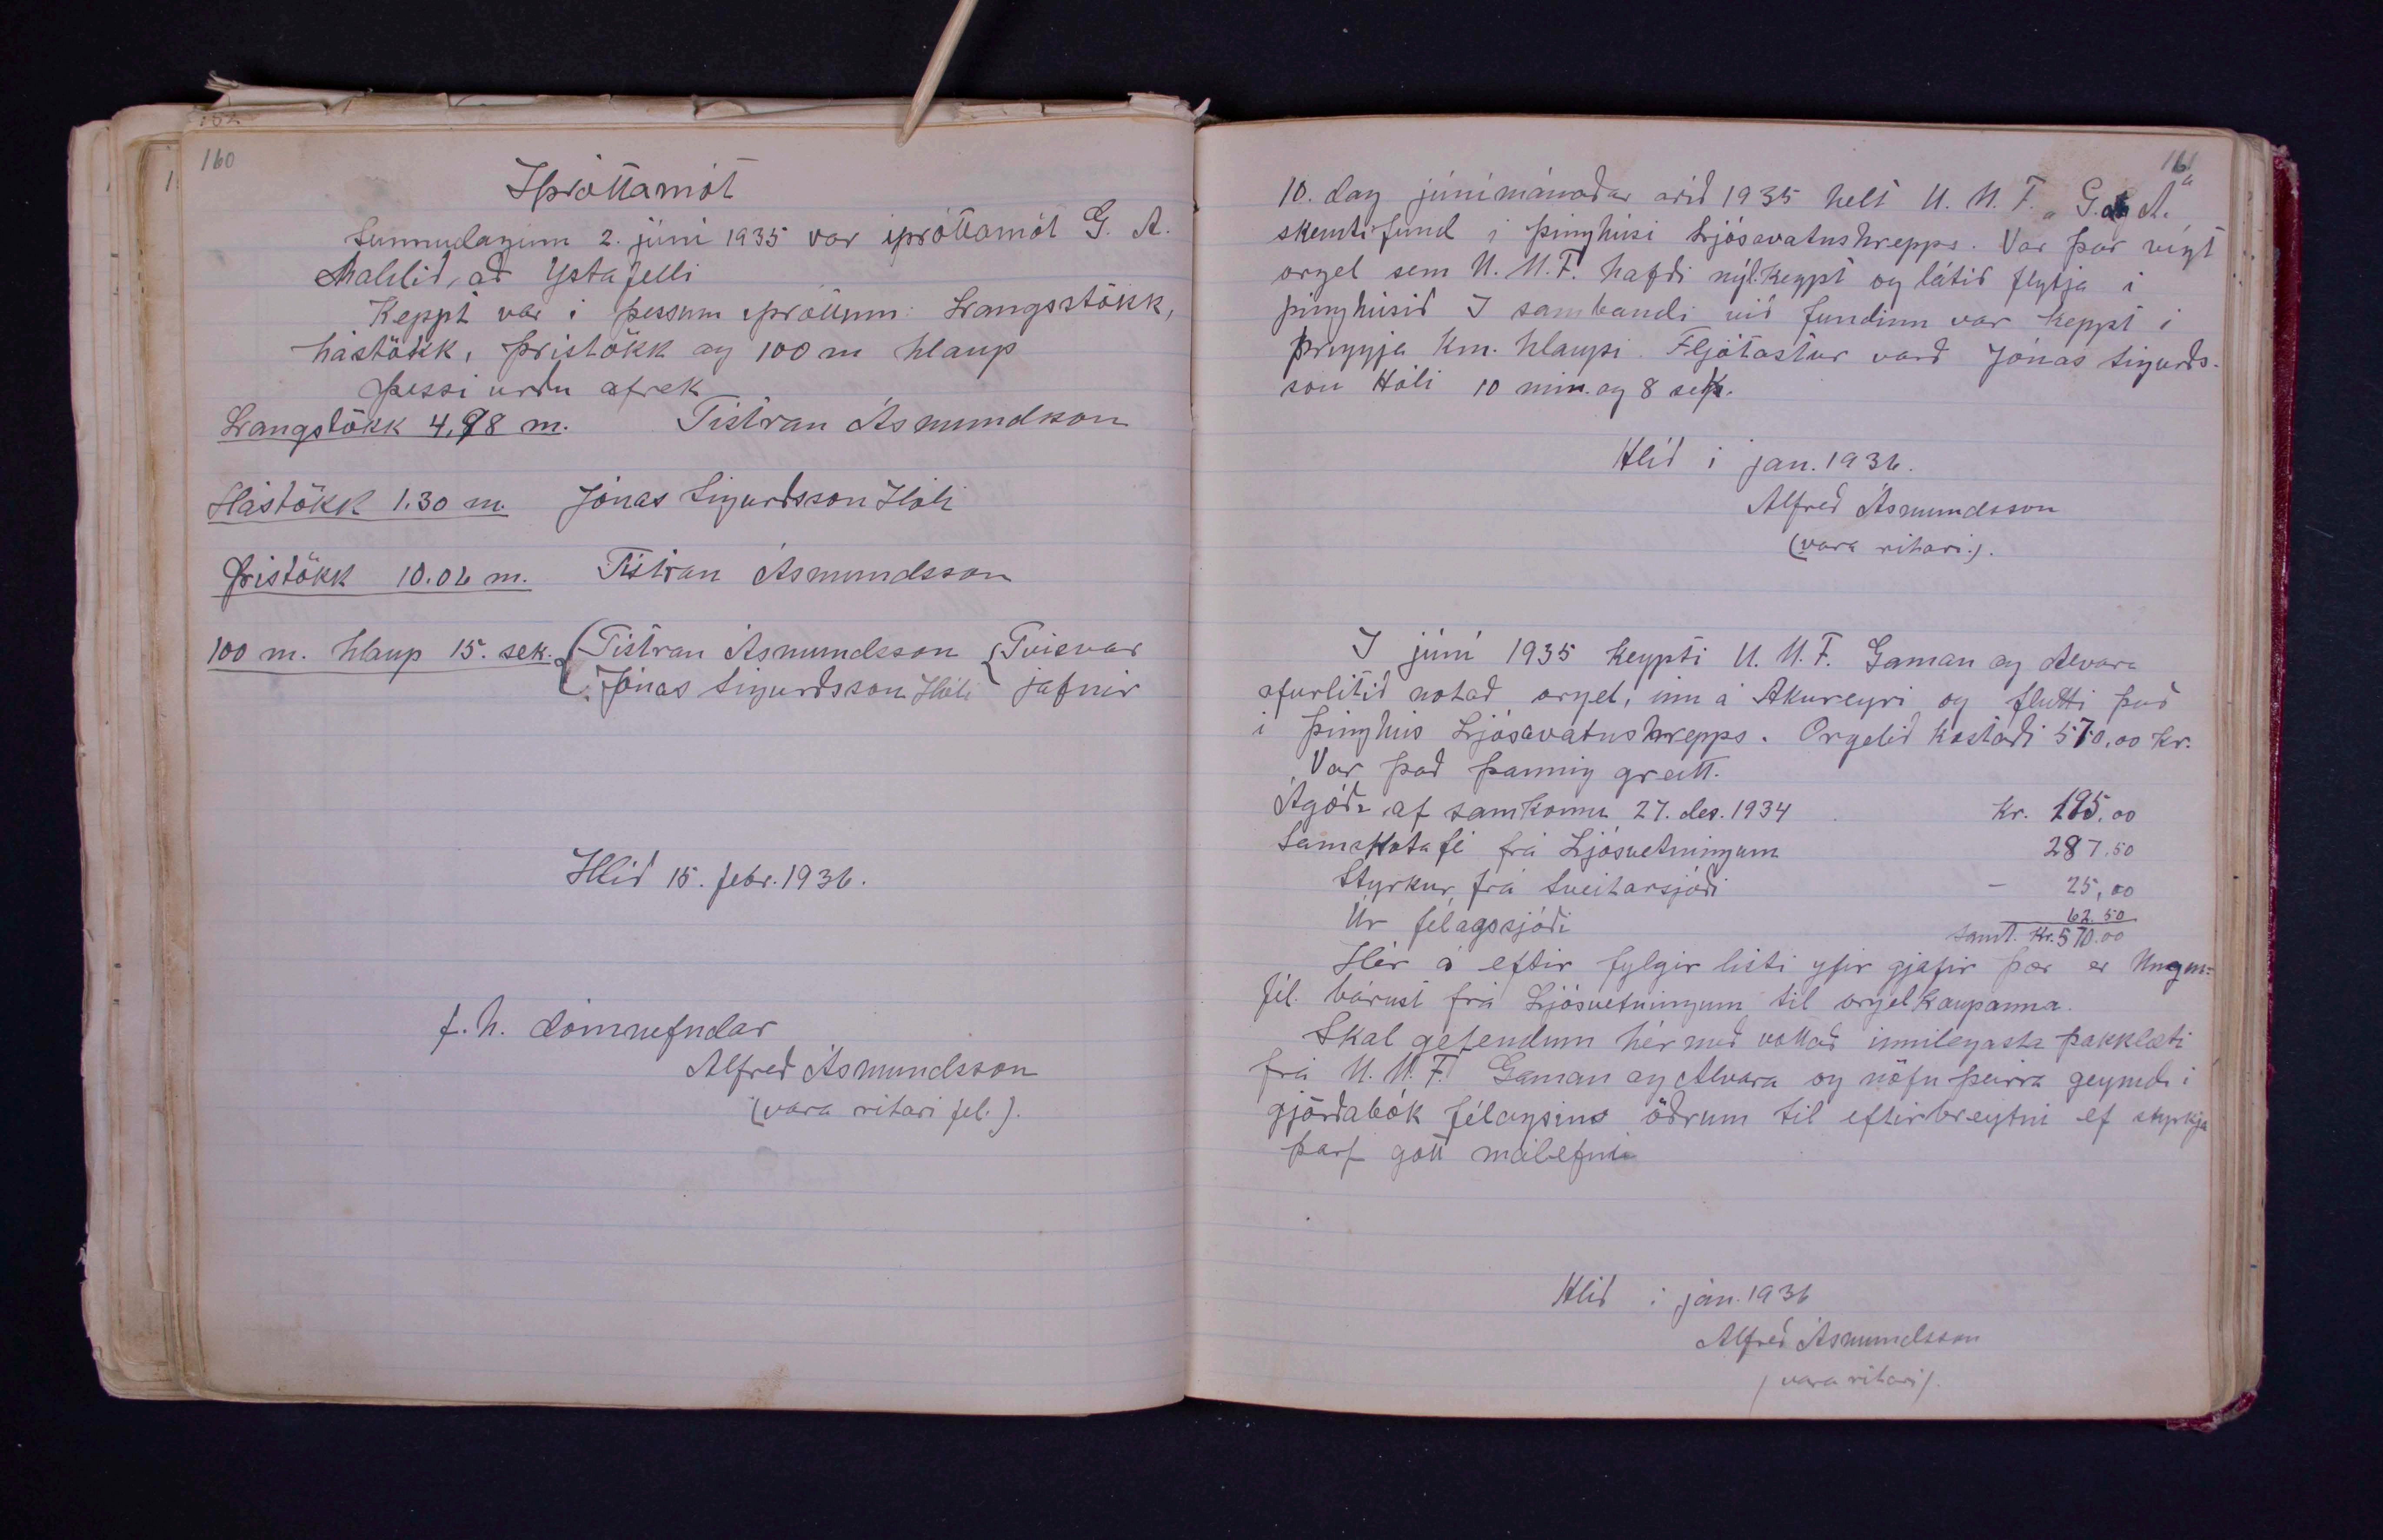 160
Íþróttamót
Sunnudaginn 2. júní 1935 var íþróttamót G. A.
haldið, að Ystafelli
Keppt var í þessum íþróttum: Langsstökk,
hástökk, þrístökk og 100 m hlaup
Þessi urðu afrek
Langstökk 4,98 m. Tistran Ásmundson
Hástökk 1.30 m. Jónas Sigurðsson Hóli
Þrístökk 10.06 m. Tistran Ásmundsson
100 m. hlaup 15. sek. { Tistran Ásmundsson { Tvisvar
Jónas Sigurðsson Hóli jafnir
Hlíð 15. febr. 1936.
f. h. dómnefndar
Alfreð Ásmundsson
(vara ritari fel.).
161
10. dag júnímánaðar árið 1935 helt U. M. F. „G. og A."
skemtifund í þinghúsi Ljósavatnshrepps. Var þar vígt
orgel sem U. M. F. hafði nýl. keypt og látið flytja í
þinghúsið Í sambandi við fundinn var keppt í
þriggja km. hlaupi. Fljótastur varð Jónas Sigurðs-
son Hóli 10 mín. og 8 sek.
Hlíð í jan. 1936.
Alfreð Ásmundsson
(vara ritari.).
Í júní 1935 keypti U. M. F. Gaman og Alvara
ofurlítið notað orgel, inn á Akureyri og flutti það
í þinghús Ljósavatnshrepps. Orgelið kostaði 570,00 kr.
Var það þannig greitt.
Ágóði af samkomu 27. des. 1934 Kr. 195,00
Samskotafé frá Ljósvetningum 287.50
Styrkur frá Sveitarsjóði - 25,00
Úr félagssjóði 62.50
Samt. Kr. 570.00
Hér á eftir fylgir listi yfir gjafir þær er Ungm=
fél. bárust frá Ljósvetningum til orgelkaupanna.
Skal gefendum hér með vottað innilegasta þakklæti
frá U. M. F. Gaman og Alvara og nöfn þeirra geymd í
gjörðabók félagsins öðrum til eftirbreytni ef styrkja
þarf gott málefni
Hlíð í jan. 1936
Alfreð Ásmundsson
(vara ritari).